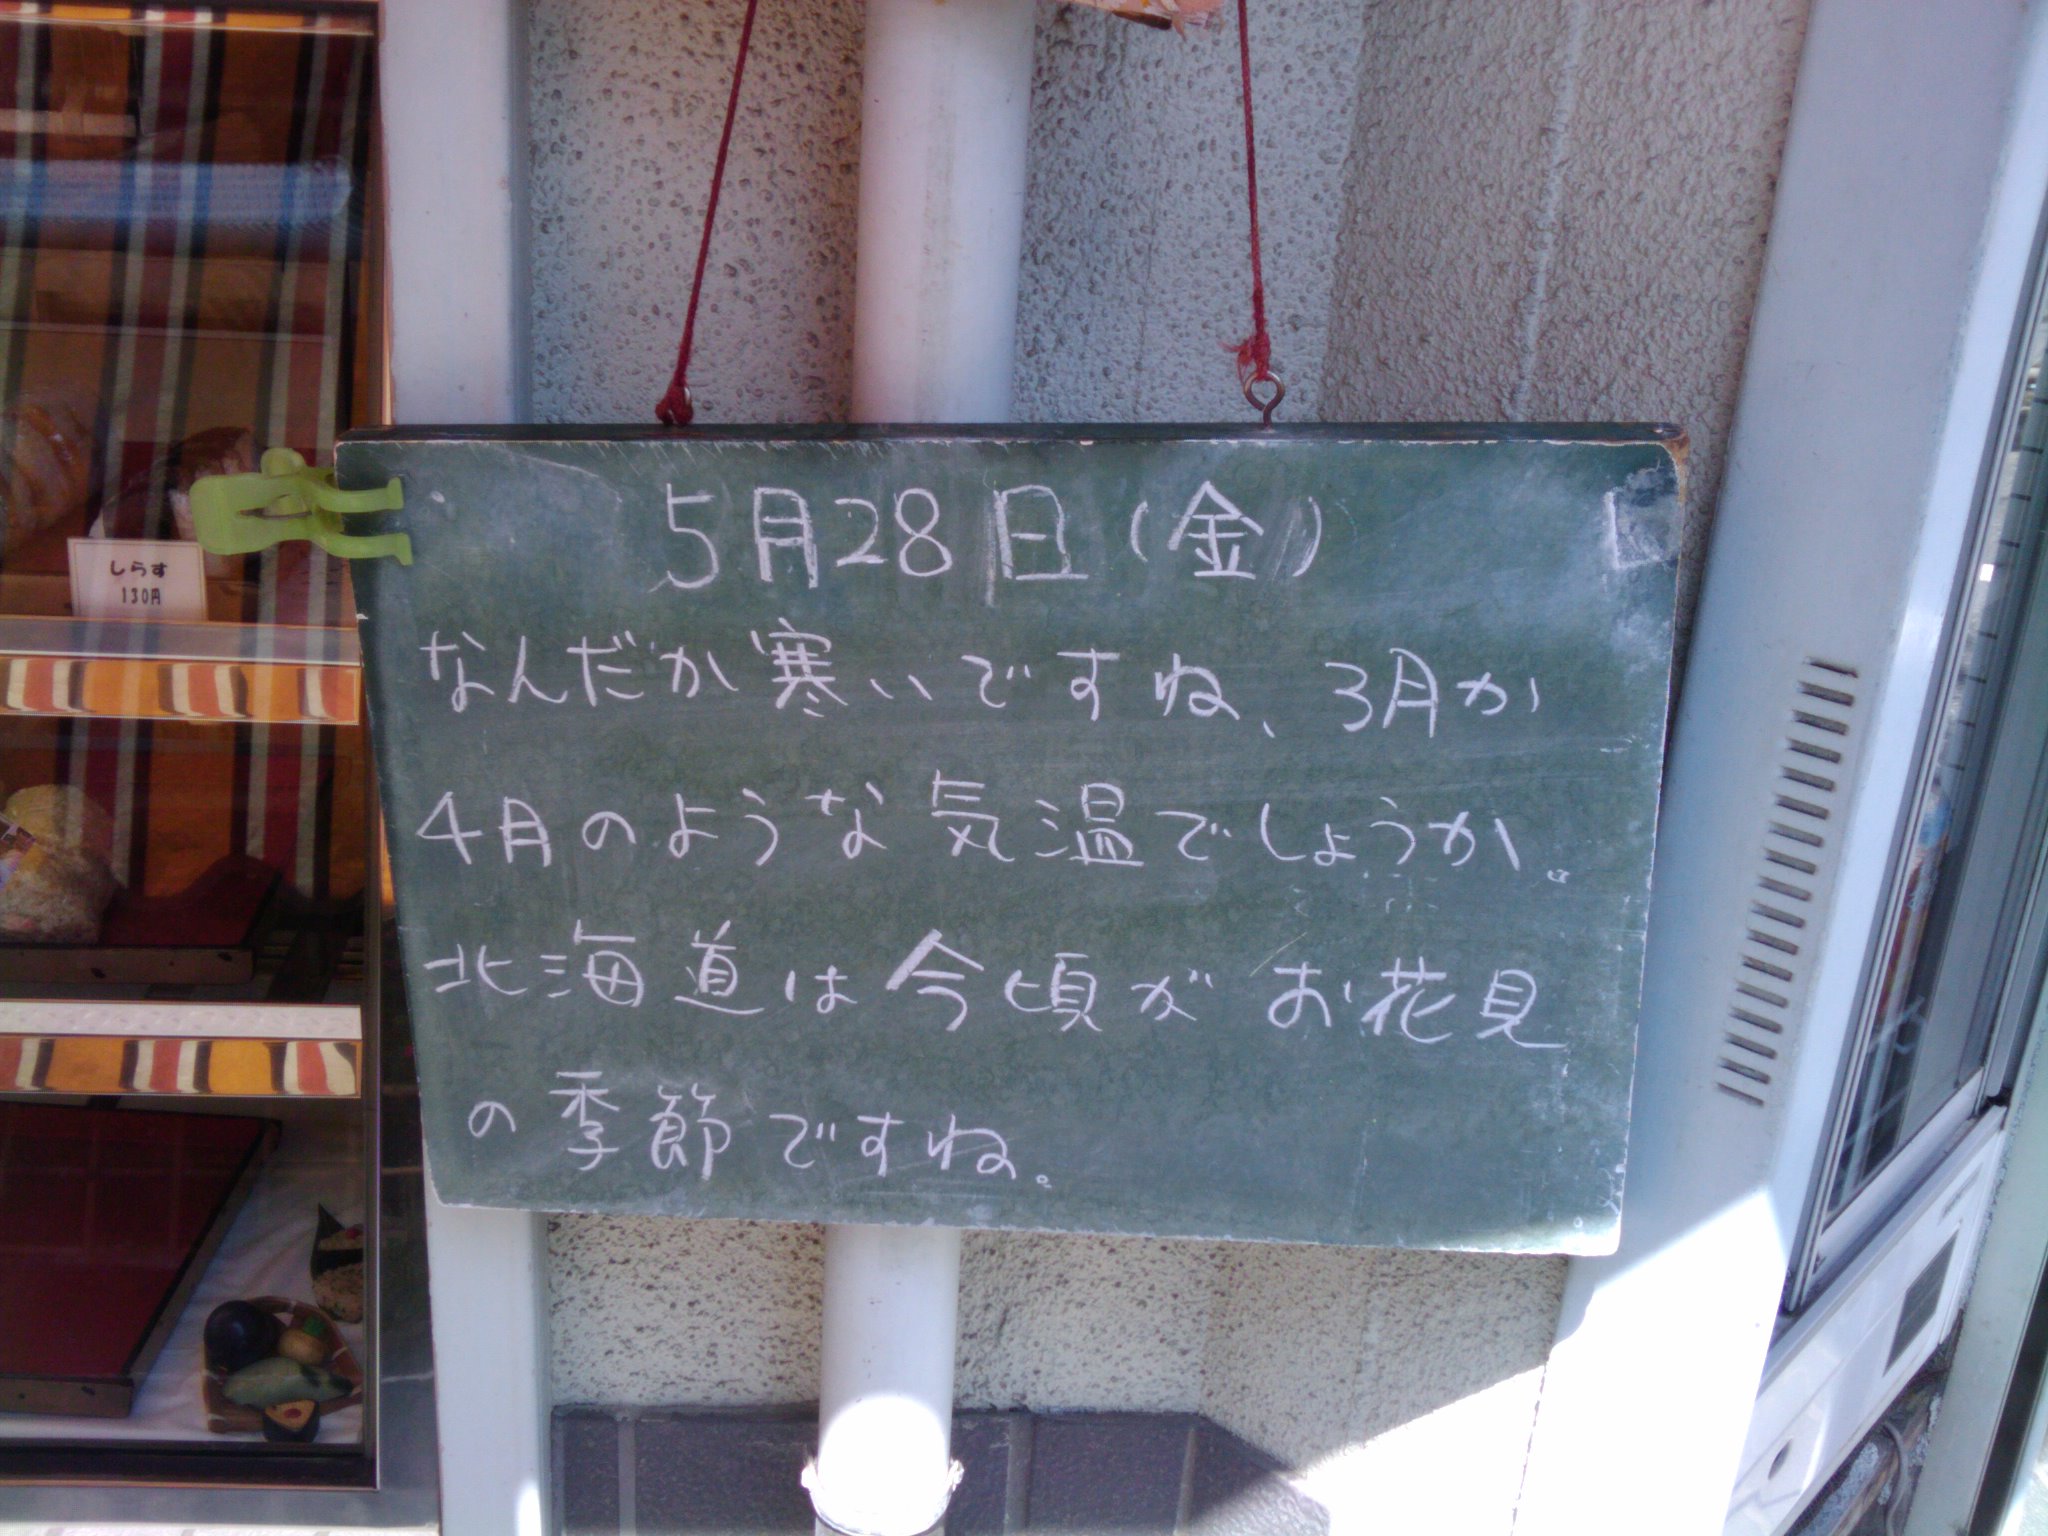 5月28日(金)
なんだか寒いですね、3月か
4月のような気温でしょうか。
北海道は今頃がお花見
の季節ですね。
しらす
130円